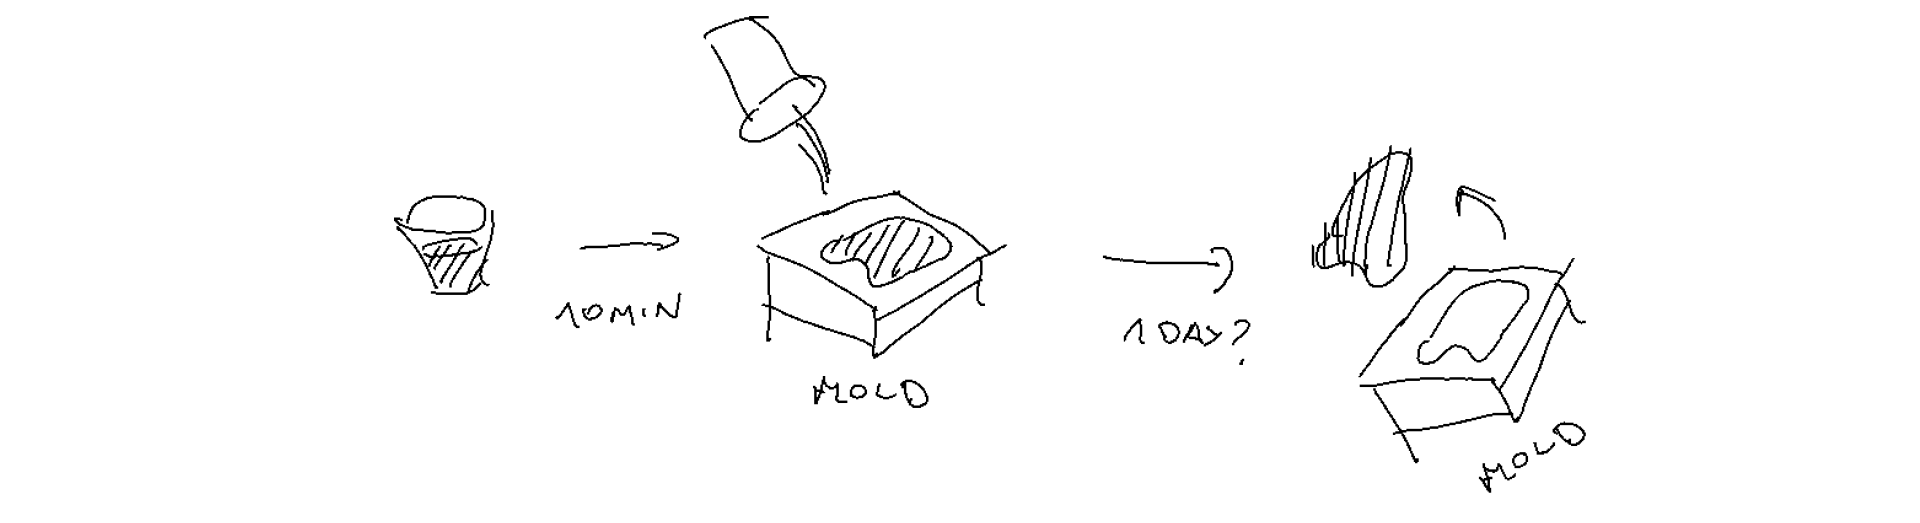 10 MIN
MOLD
1 DAY?
MOLD